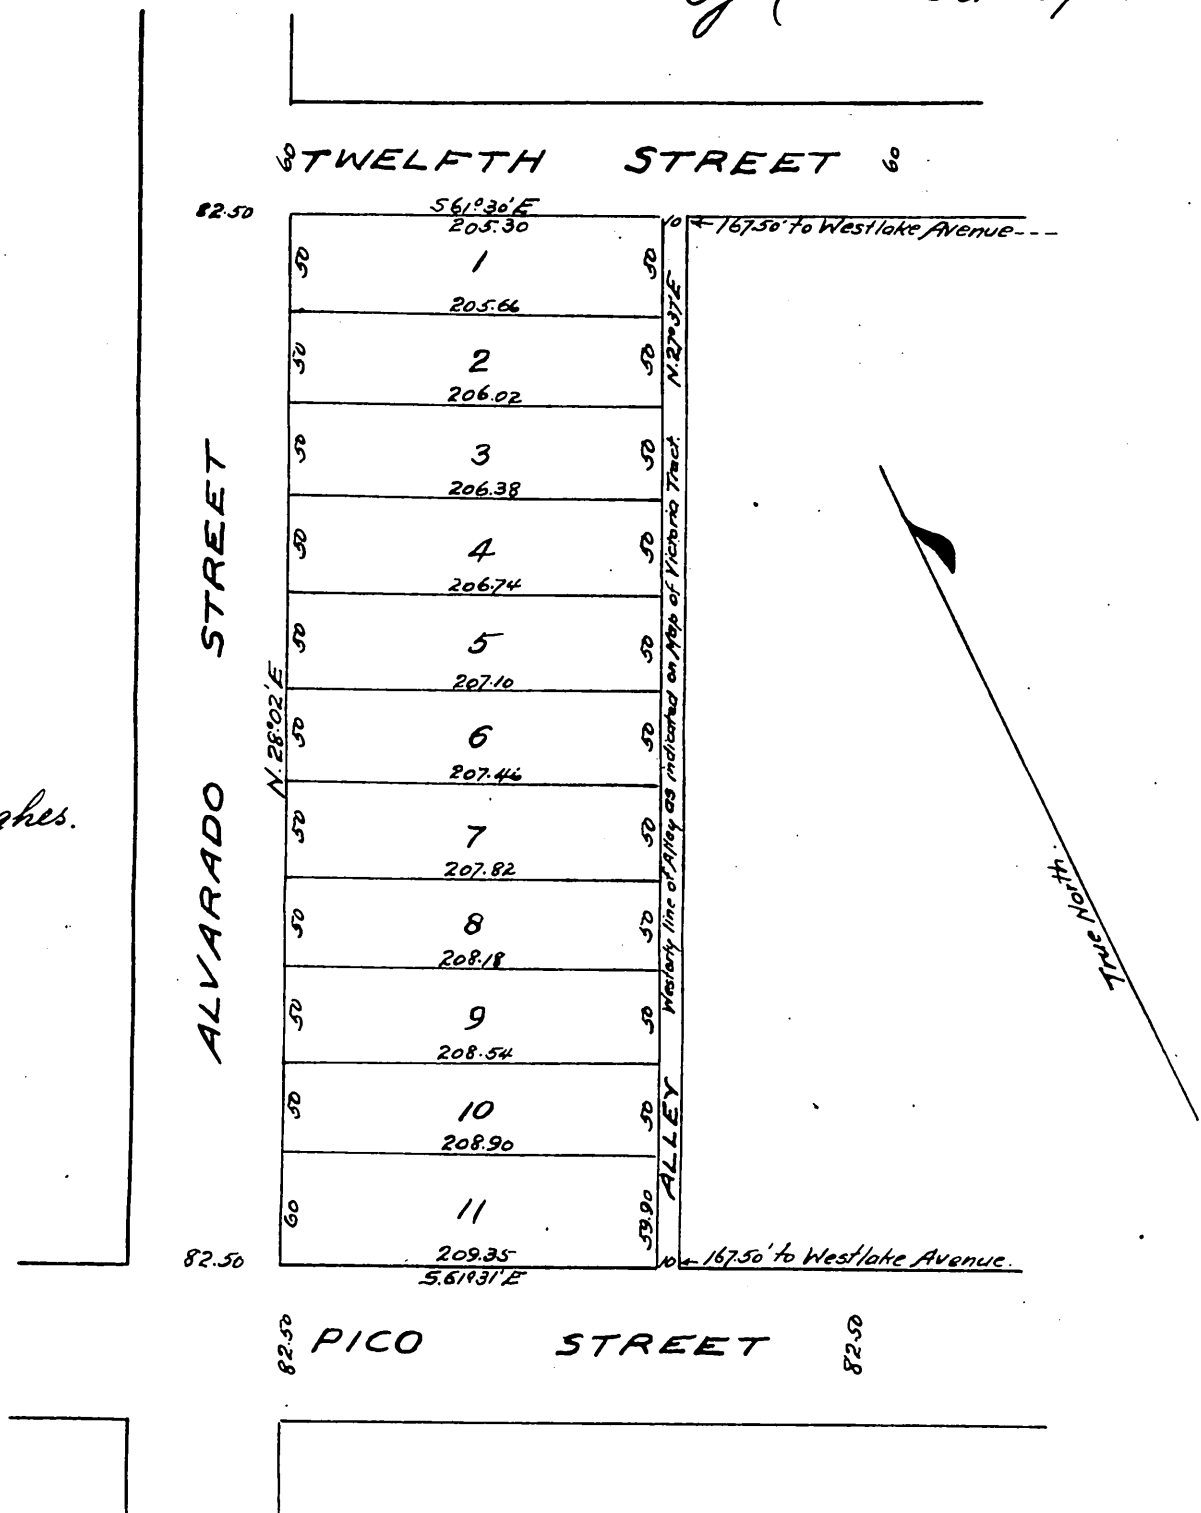 60 TWELFTH STREET 60
82.50
S61°30'E
205.30
10 ← 167.50' to Westlake Avenue---
50 1 50
205.66
50 2 50
206.02
50 3 50
206.38
50 4 50
206.74
50 5 50
207.10
50 6 50
207.46
50 7 50
207.82
50 8 50
208.18
50 9 50
208.54
50 10 50
208.90
60 11 59.90
209.35
S.61°31'E
82.50
10 ← 167.50' to Westlake Avenue.
ALVARADO STREET
N. 28°02'E
ALLEY Westerly line of Alley as indicated on Map of Victoria Tract. N.27°37'E
True North.
82.50 PICO STREET 82.50